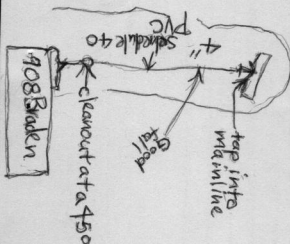 908 Braden
cleanout at a 450
4"
Schedule 40
PVC
Good
fall
tap into
mainline